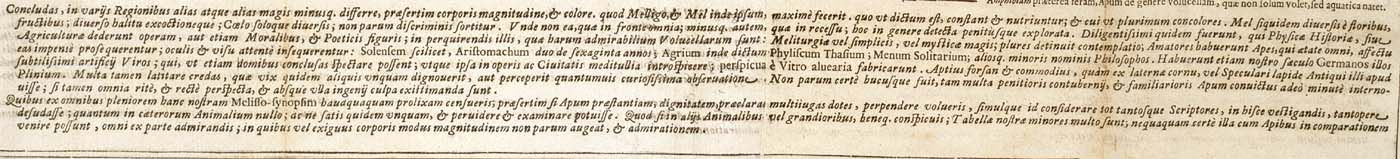 Ampholam præterea feram, Apum de genere volucellam, quæ non solum volet, sed aquatica natet.
Concludas, in varijs Regionibus alias atque alias magis minusq. differre, præsertim corporis magnitudine, & colore. quod Melligo, & Mel inde ipsum, maximè fecerit. quo vt dictum est, constant & nutriuntur; & cui vt plurimum concolores. Mel siquidem diuersis è floribus,
fructibus; diuerso halitu excoctioneque; Cœlo soloque diuersis; non parum discriminis sortitur. Vnde non ea, quæ in fronte omnia; minusq. autem, quæ in recessu; hoc in genere detecta penitusque explorata. Diligentissimi quidem fuerunt, qui Physicæ Historiæ, siue
Agriculturæ dederunt operam, aut etiam Moralibus, & Poeticis figuris; in perquirendis illis, quæ harum admirabilium Volucellarum sunt: Meliturgia vel simplicis, vel mysticæ magis; plures detinuit contemplatio; Amatores habuerunt Apes, qui ætate omni, affectu
eas impensè prosequerentur; oculis & visu attentè insequerentur: Solensem scilicet, Aristomachum duo de sexaginta annos; Agrium inde dictum Phyliscum Thasium; Menum Solitarium; aliosq. minoris nominis Philosophos. Habuerunt etiam nostro sæculo Germanos illos
subtilissimi artificij Viros; qui, vt etiam domibus conclusas spectare possent; vtque ipsa in operis ac Ciuitatis meditullia introspicere; perspicua è Vitro aluearia fabricarunt. Aptius forsan & commodius, quàm ex laterna cornu, vel Speculari lapide Antiqui illi apud
Plinium. Multa tamen latitare credas, quæ vix quidem aliquis vnquam dignouerit, aut perceperit quantumuis curiosissima obseruatione. Non parum certè hucusque fuit, tam multa penitioris contubernij, & familiarioris Apum conuictus adeò minutè interno-
uisse; si tamen omnia ritè, & rectè perspecta, & absque vlla ingenij culpa existimanda sunt.
Quibus ex omnibus pleniorem hanc nostram Melisso-synopsim haudquaquam prolixam censueris; præsertim si Apum præstantiam, dignitatem, præclaras multiiugas dotes, perpendere volueris, simulque id considerare tot tantosque Scriptores, in hisce vestigandis, tantopere
desudasse; quantum in cæterorum Animalium nullo; ac ne satis quidem vnquam, & peruidere & examinare potuisse. Quod si in alijs Animalibus vel grandioribus, beneq. conspicuis; Tabellæ nostræ minores multo sunt; nequaquam certè illa cum Apibus in comparationem
venire possunt, omni ex parte admirandis; in quibus vel exiguus corporis modus magnitudinem non parum augeat, & admirationem.